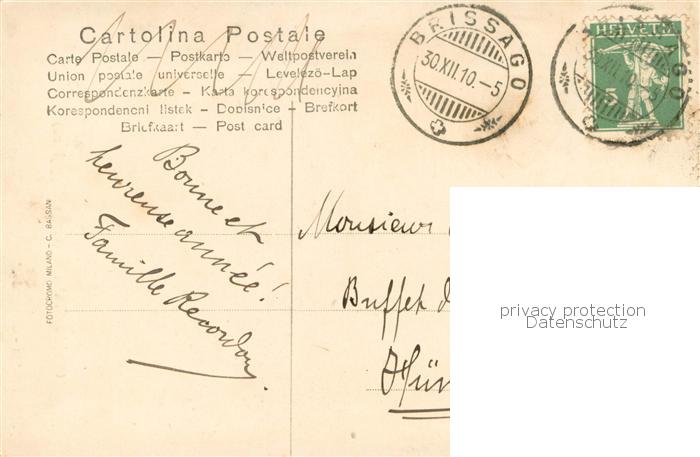 Cartolina Postale
Carte Postale — Postkarte — Weltpostverein
Union postale universelle — Levelező-Lap
Correspondenzkarte — Karta korespondencyina
Korespondencni listek — Dopisnice — Brefkort
Briefkaart — Post card
BRISSAGO
30.XII.10.-5
HELVETIA
5
Bonne et
heureuse année!
Famille Recordon.
Monsieur
Buffet d
FOTOCROMO MILANO - C. BASSANI
privacy protection
Datenschutz